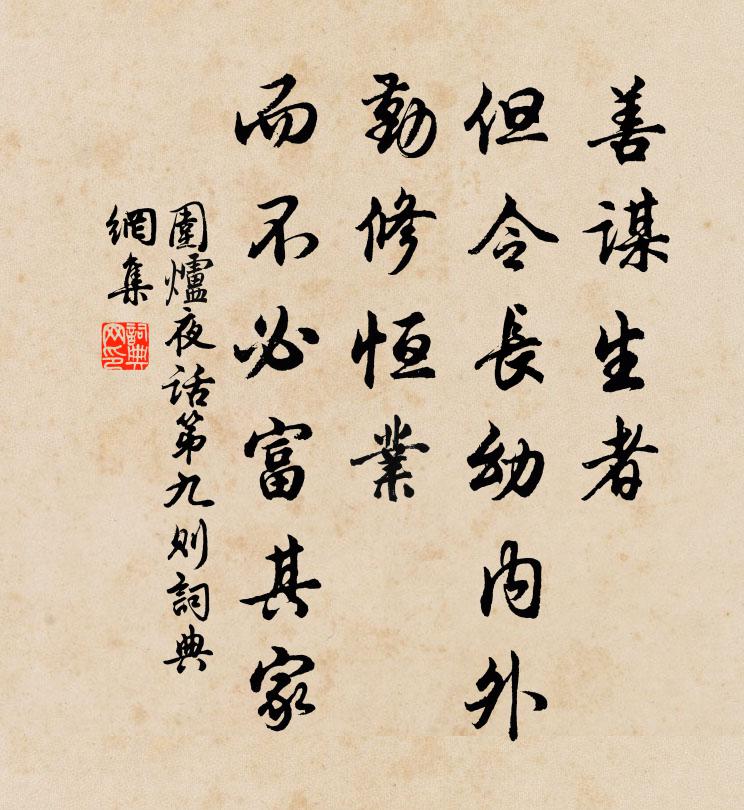 善謀生者
但令長幼内外
勤修恒業
而不必富其家
圍爐夜话第九则詞典
網集
詞典
网印